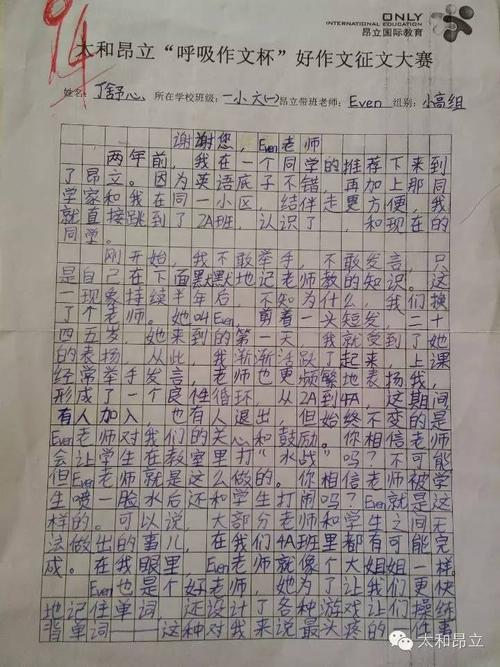 94
ONLY
INTERNATIONAL EDUCATION
昂立国际教育
太和昂立“呼吸作文杯”好作文征文大赛
姓名：丁舒心 所在学校班级：一小六(一) 昂立带班老师：Even 组别：小高组
谢谢您，Even老师
两年前，我在一个同学的推荐下来到
了昂立。因为英语底子不错，再加上那同
学家和我在同一小区，结伴走更方便，我
就直接跳到了2A班，认识了，和现在的
同学。
刚开始，我不敢举手，不敢发言，只
是自己在下面默默地记老师教的知识。这
一现象持续半年后，不知为什么，我们换
了个老师。她叫Even，剪着一头短发，二十
四五岁，她来到的第一天，我就受到了她
的表扬，从此，我渐渐活跃了起来，上课
经常举手发言，老师也更频繁地表扬我，
形成了一个良性循环，从2A到4A，这期间
有人加入，也有人退出，但始终不变的是
Even老师对我们的关心和鼓励。你相信老师
会让学生在教室里打“水战”吗？不可能
但Even老师就是这么做的。你相信老师被学
生喷一脸水后还和学生打闹吗？Even就是这
样的。可以说，大部分老师和学生之间无
法做出的事儿，在我们4A班里都有可能完
成。在我眼里，Even老师就像个大姐姐一样。
Even也是个好老师，她为了让我们更快
地记住单词，还设计了各种游戏让们操练
背单词——这种对我来说最头疼的一件事
太和昂立